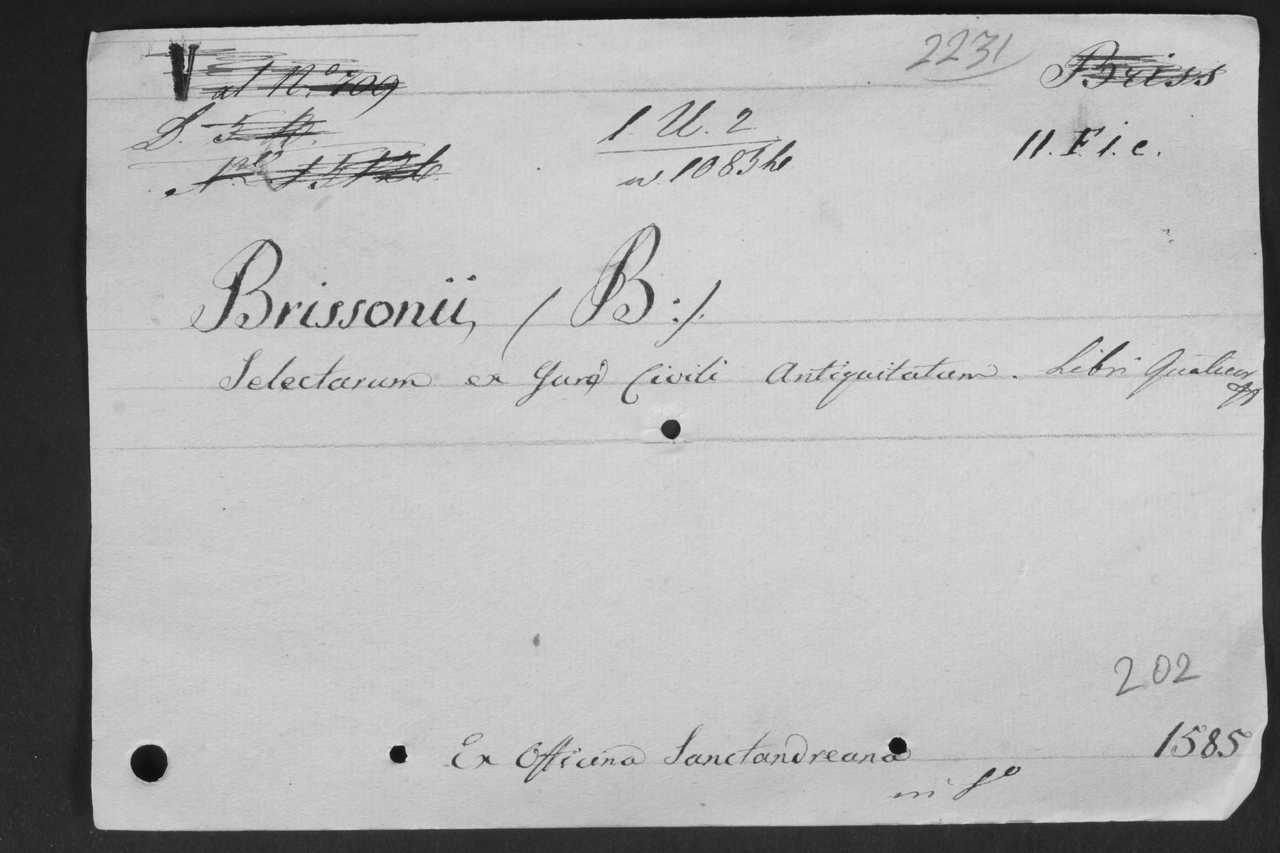 V al N.º 709 2231 Briss
S. 5
1. U. 2 11. F. i. c.
Brissonii, (B:).
Selectarum ex Jure Civili Antiquitatum. Libri Quatuor
202
Ex Officina Sanctandreana 1585
in 8º